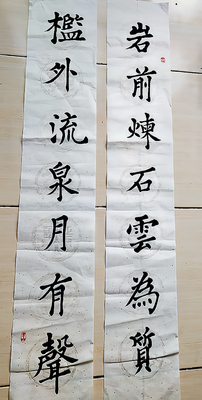 岩前煉石雲為質
檻外流泉月有聲